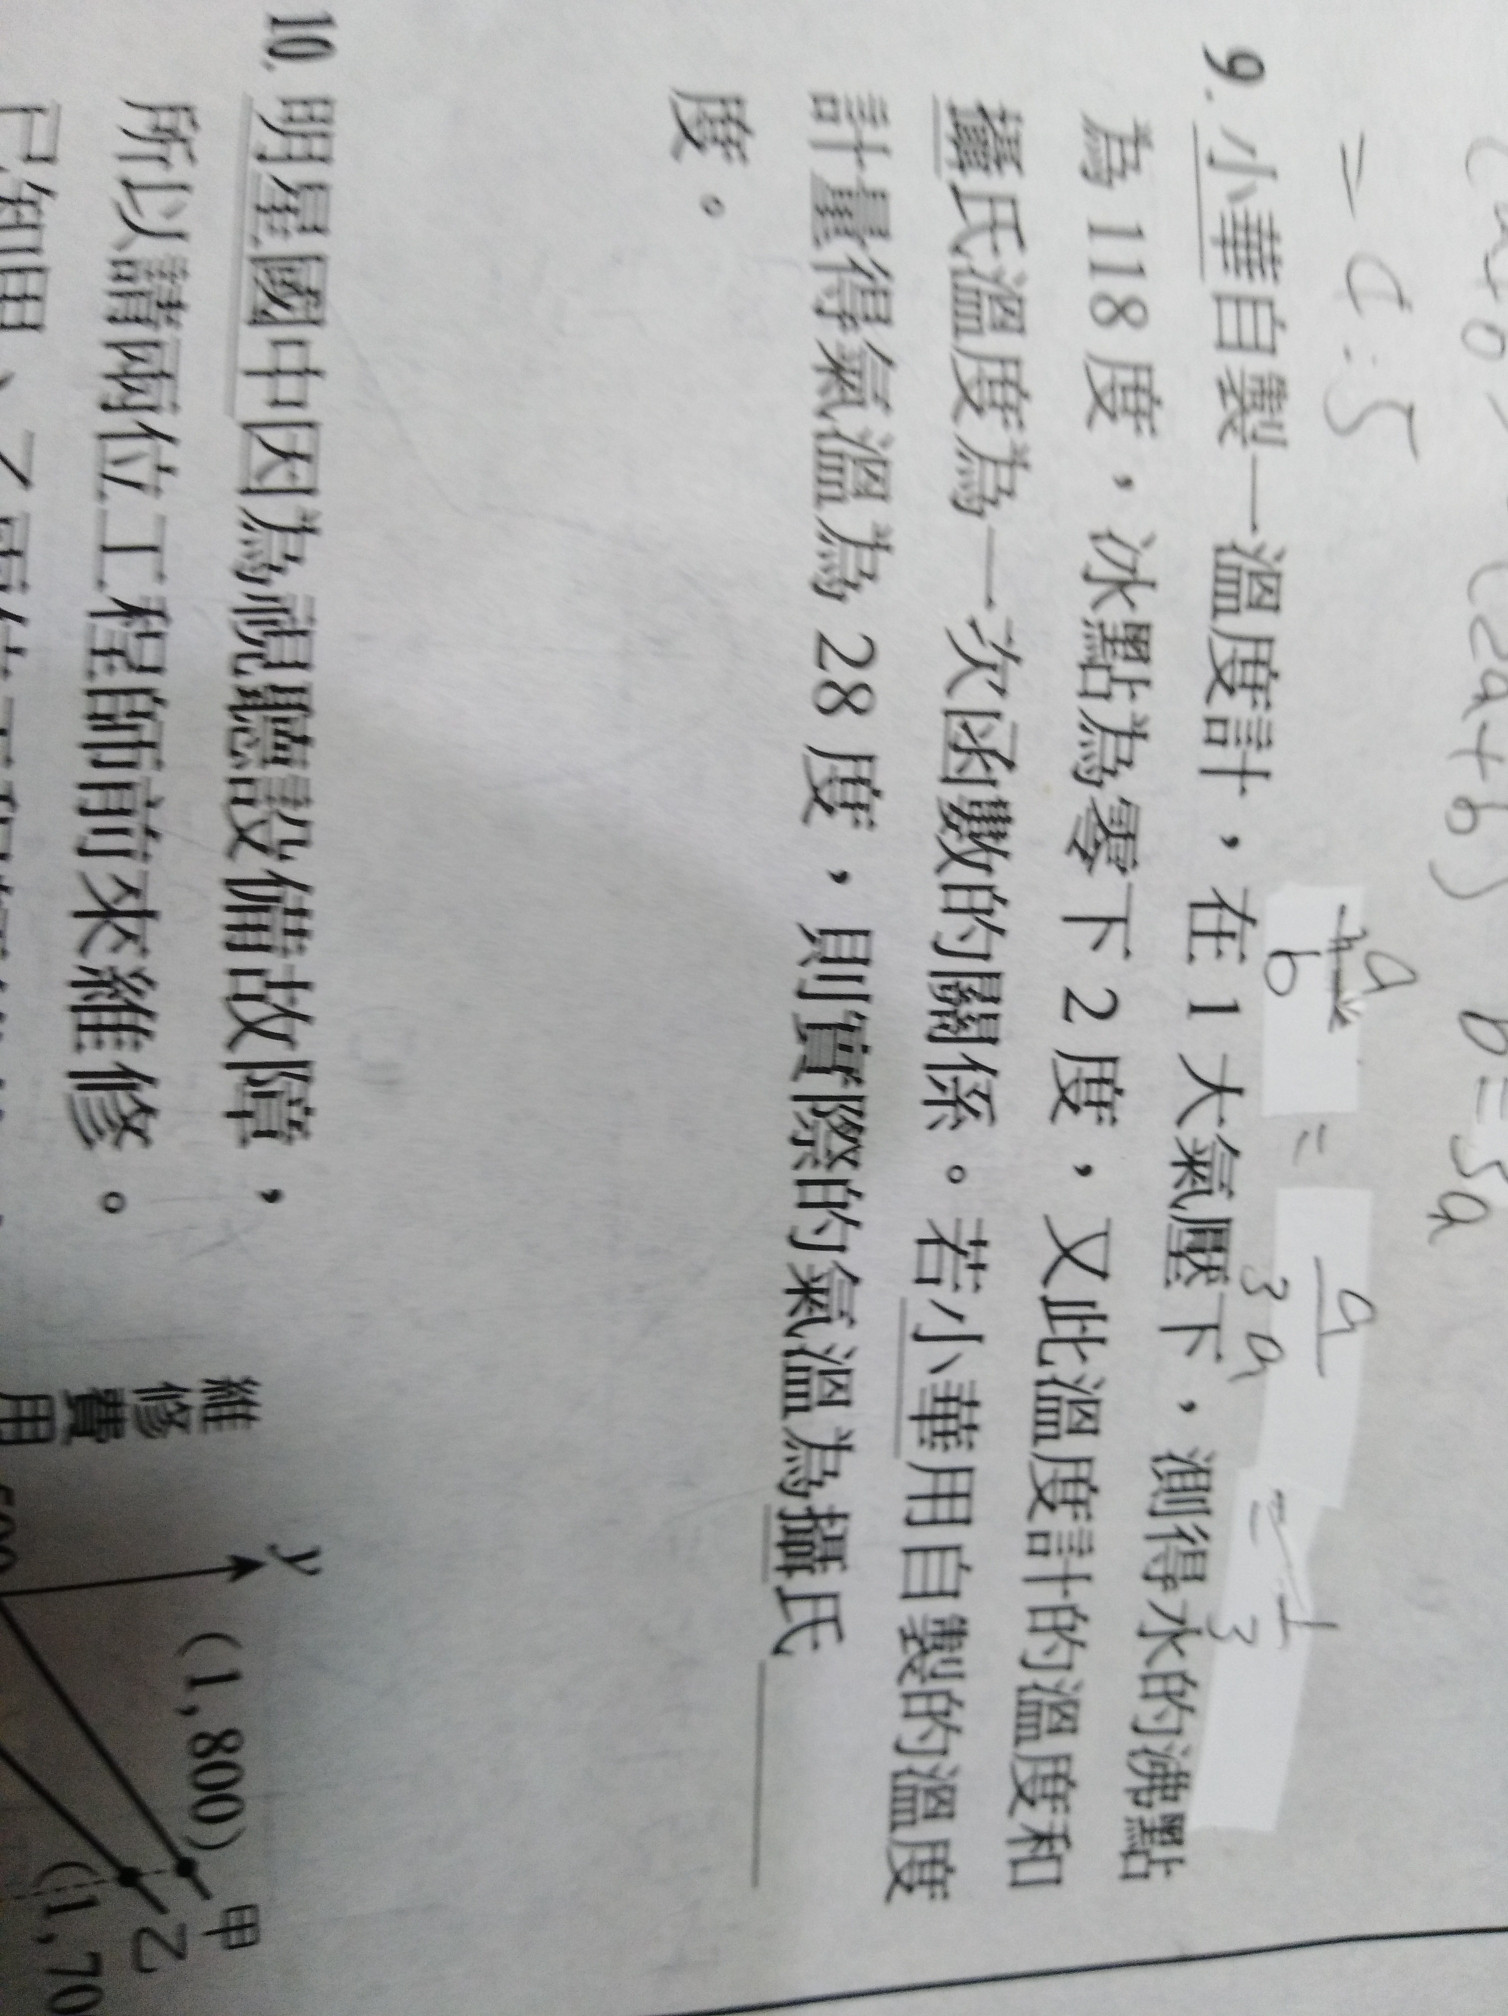 (2a+b) b=5a
= a:5
a
b
=
a
3a
=
1
3
9. 小華自製一溫度計，在 1 大氣壓下，測得水的沸點
為 118 度，冰點為零下 2 度，又此溫度計的溫度和
攝氏溫度為一次函數的關係。若小華用自製的溫度
計量得氣溫為 28 度，則實際的氣溫為攝氏
度。
10. 明星國中因為視聽設備故障，
所以請兩位工程師前來維修。
已知甲、乙
維
修
費
用
y
(1,800)
甲
乙
(1,70